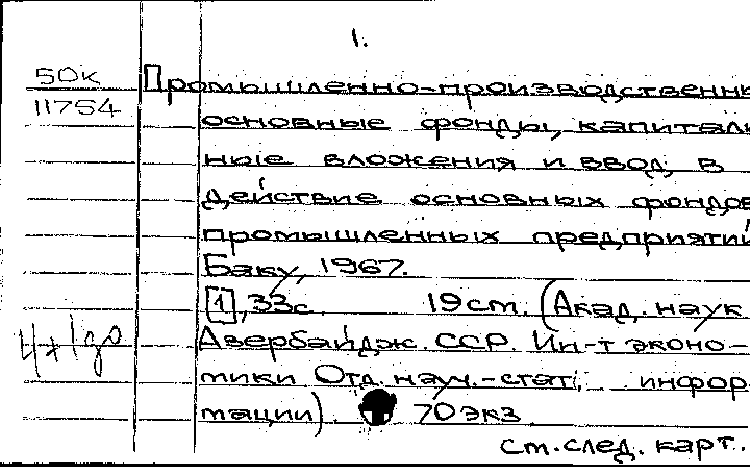 1.
50к
11754
Промышленно-производственны
основные фонды, капиталь
ные вложения и ввод в
действие основных фондов
промышленных предприятий
Баку, 1967.
[1], 33с. 19см. (Акад. наук
Азербайдж. ССР. Ин-т эконо-
мики Отд. науч.-стат. инфор-
мации) 70 экз
4+1до
см. след. карт.